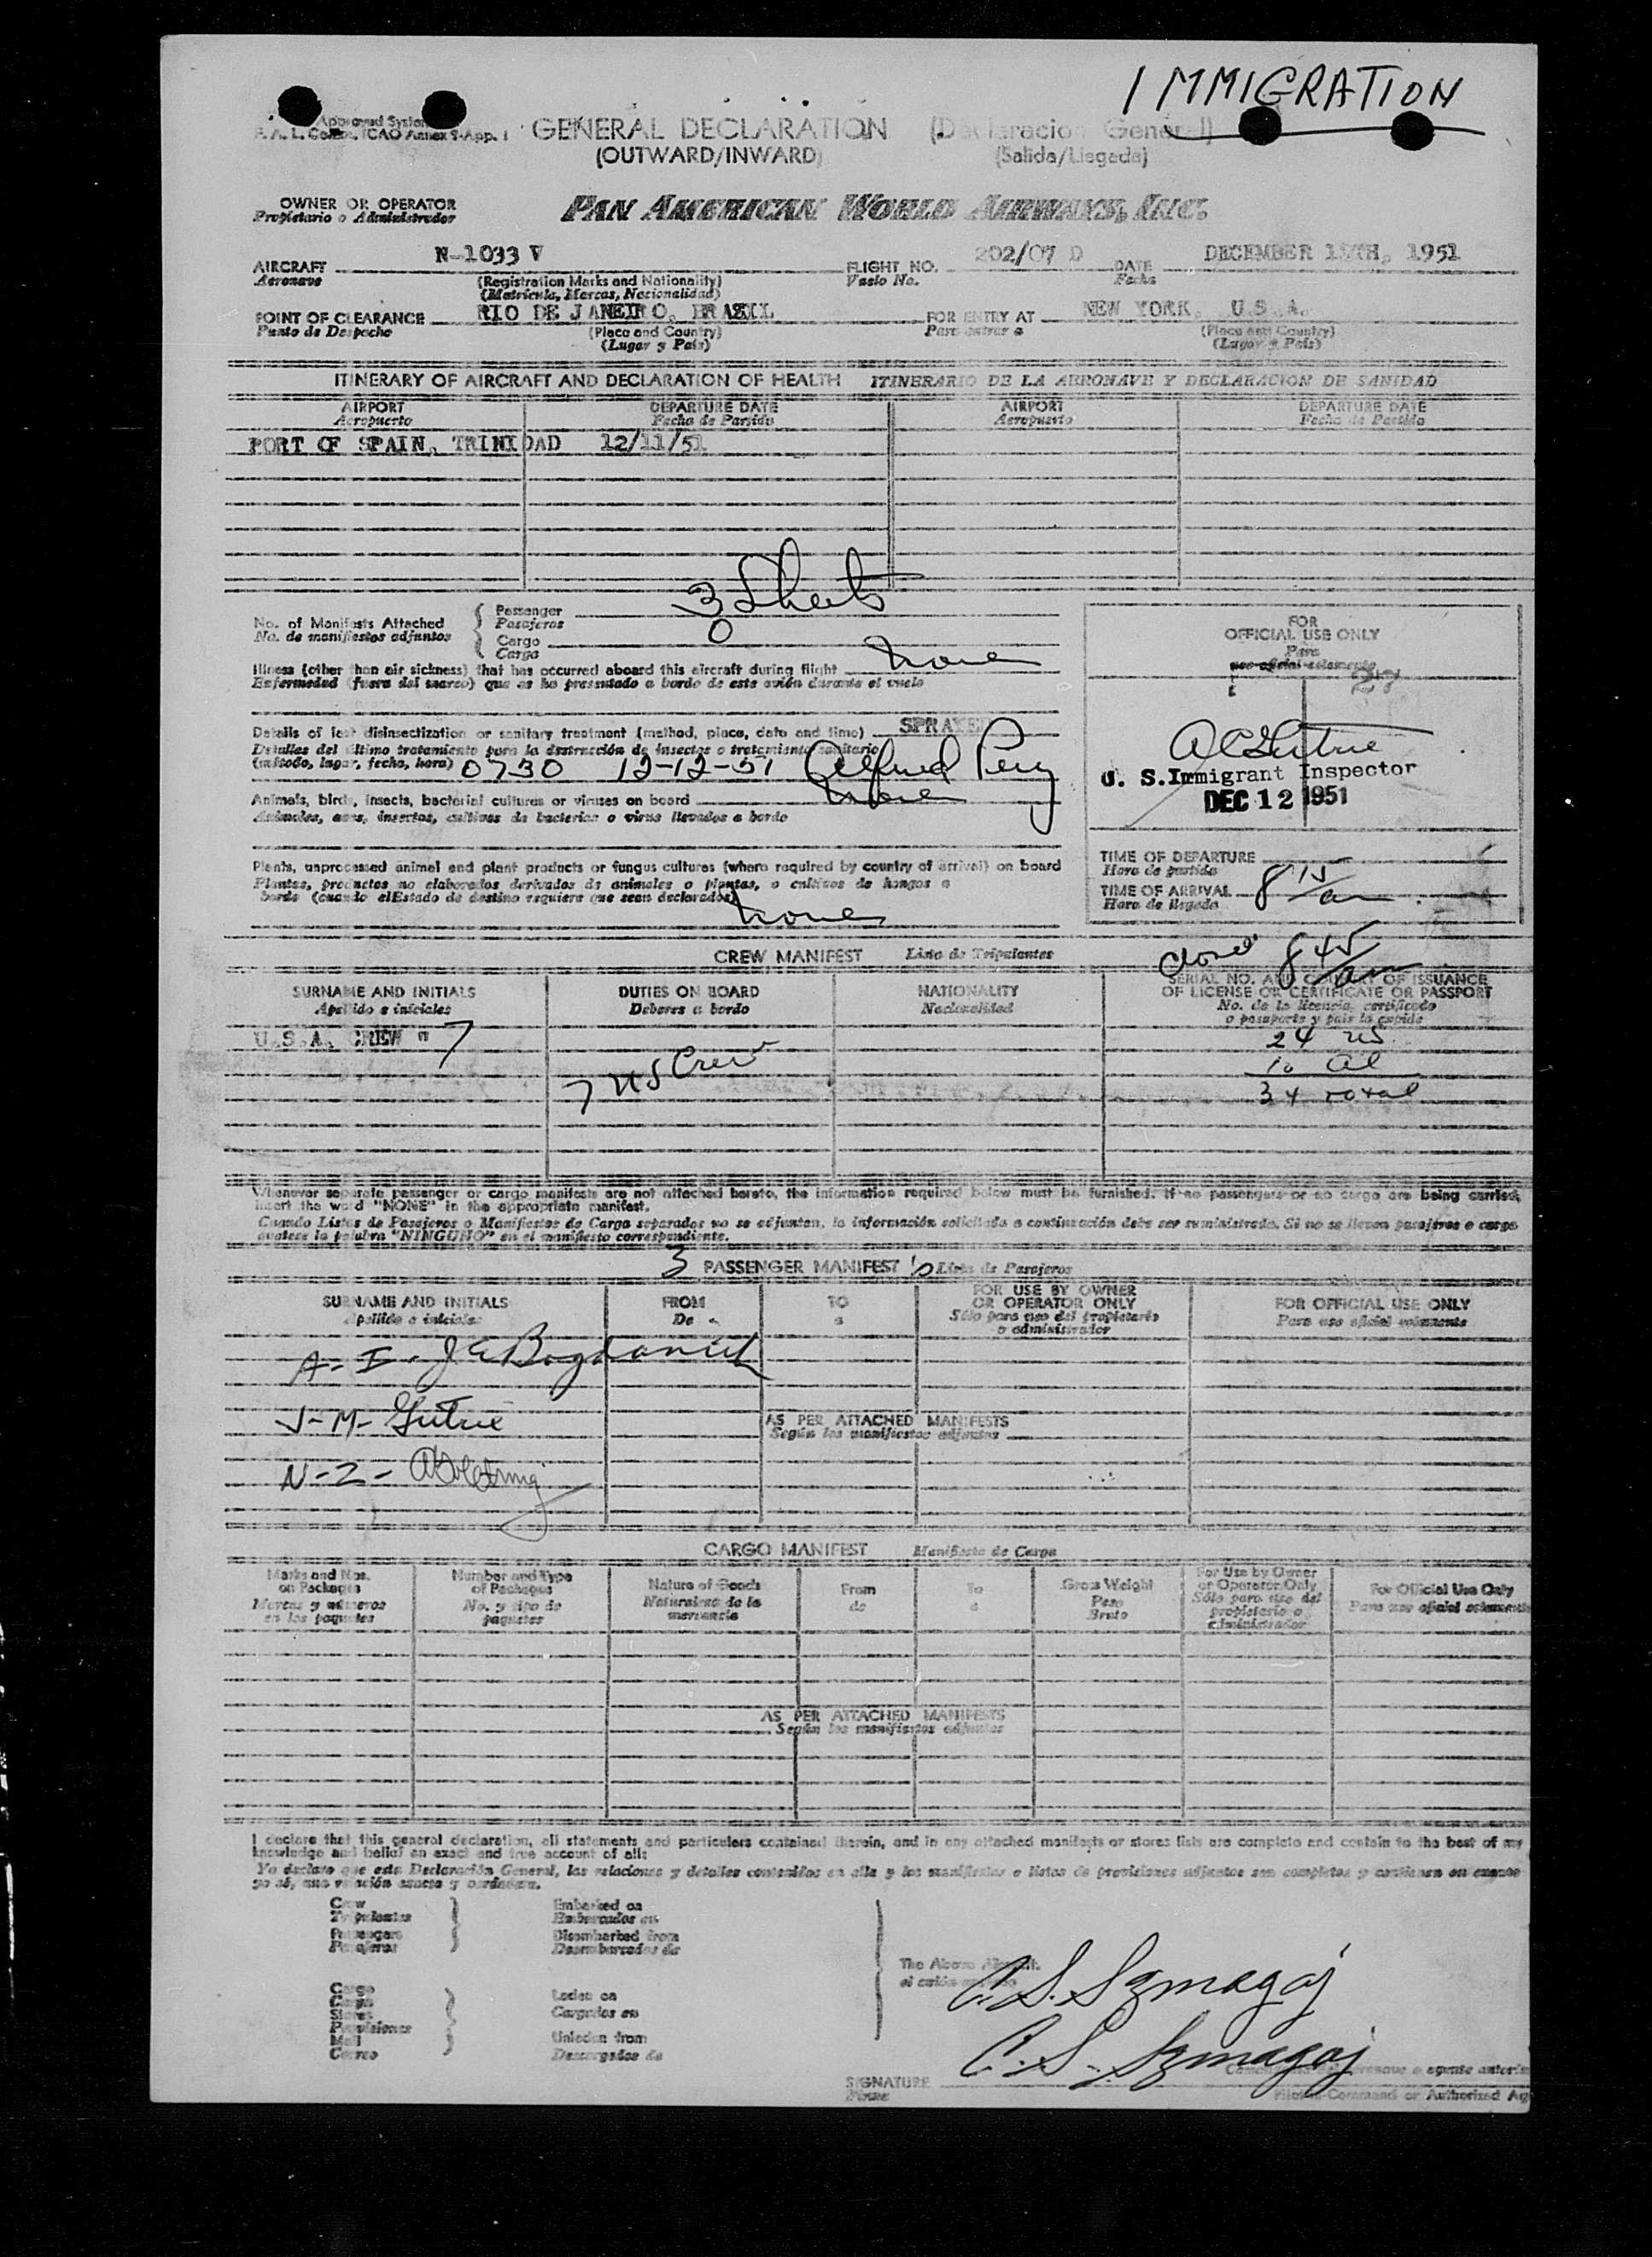 IMMIGRATION
Approved System
F. A. L. Comm. ICAO Annex 9-App. 1
GENERAL DECLARATION (Declaracion General)
(OUTWARD/INWARD) (Salida/Llegada)
OWNER OR OPERATOR
Propietario o Administrador
PAN AMERICAN WORLD AIRWAYS, INC.
AIRCRAFT N-1033 V FLIGHT NO. 202/07 D DATE DECEMBER 11TH, 1951
Aeronave (Registration Marks and Nationality) Vuelo No. Fecha
(Matricula, Marcas, Nacionalidad)
POINT OF CLEARANCE RIO DE JANEIRO, BRAZIL FOR ENTRY AT NEW YORK, U.S.A.
Punto de Despacho (Place and Country) Para entrar a (Place and Country)
(Lugar y País) (Lugar y País)
ITINERARY OF AIRCRAFT AND DECLARATION OF HEALTH ITINERARIO DE LA AERONAVE Y DECLARACION DE SANIDAD
AIRPORT DEPARTURE DATE AIRPORT DEPARTURE DATE
Aeropuerto Fecha de Partida Aeropuerto Fecha de Partida
PORT OF SPAIN, TRINIDAD 12/11/51
No. of Manifests Attached
No. de manifiestos adjuntos
Passenger 3 Sheets
Pasajeros
Cargo 0
Carga
Illness (other than air sickness) that has occurred aboard this aircraft during flight None
Enfermedad (fuera del mareo) que se ha presentado a bordo de este avión durante el vuelo
Details of last disinsectization or sanitary treatment (method, place, date and time) SPRAYED
Detalles del último tratamiento para la destrucción de insectos o tratamiento sanitario
(método, lugar, fecha, hora) 0730 12-12-51 Alfred Perry
Animals, birds, insects, bacterial cultures or viruses on board None
Animales, aves, insectos, cultivos de bacterias o virus llevados a bordo
Plants, unprocessed animal and plant products or fungus cultures (where required by country of arrival) on board
Plantas, productos no elaborados derivados de animales o plantas, o cultivos de hongos a
bordo (cuando el Estado de destino requiere que sean declarados) None
FOR
OFFICIAL USE ONLY
Para
uso oficial solamente
27
U. S. Immigrant Inspector
DEC 12 1951
TIME OF DEPARTURE
Hora de partida
TIME OF ARRIVAL 8 15/am
Hora de llegada
closed 8 45/am
CREW MANIFEST Lista de Tripulantes
SURNAME AND INITIALS DUTIES ON BOARD NATIONALITY SERIAL NO. AND COUNTRY OF ISSUANCE
Apellido e iniciales Deberes a bordo Nacionalidad OF LICENSE OR CERTIFICATE OR PASSPORT
No. de la licencia, certificado
o pasaporte y país la expide
U.S.A. CREW " 7
7 US Crew
24 US
10 al
34 total
Whenever separate passenger or cargo manifests are not attached hereto, the information required below must be furnished. If no passengers or no cargo are being carried,
insert the word "NONE" in the appropriate manifest.
Cuando Listas de Pasajeros o Manifiestos de Carga separados no se adjuntan, la información solicitada a continuación debe ser suministrada. Si no se llevan pasajeros o carga
anótese la palabra "NINGUNO" en el manifiesto correspondiente.
3 PASSENGER MANIFEST Lista de Pasajeros
SURNAME AND INITIALS FROM TO FOR USE BY OWNER FOR OFFICIAL USE ONLY
Apellido e iniciales De a OR OPERATOR ONLY Para uso oficial solamente
Sólo para uso del propietario
o administrador
A-I-
J-M-
N-Z-
AS PER ATTACHED MANIFESTS
Según los manifiestos adjuntos
CARGO MANIFEST Manifiesto de Carga
Marks and Nos. Number and Type Nature of Goods From To Gross Weight For Use by Owner For Official Use Only
on Packages of Packages Naturaleza de la de a Peso or Operator Only Para uso oficial solamente
Marcas y números No. y tipo de mercancía Bruto Sólo para uso del
en los paquetes paquetes propietario o
administrador
AS PER ATTACHED MANIFESTS
Según los manifiestos adjuntos
I declare that this general declaration, all statements and particulars contained therein, and in any attached manifests or stores lists are complete and contain to the best of my
knowledge and belief an exact and true account of all:
Yo declaro que esta Declaración General, las relaciones y detalles contenidos en ella y los manifiestos o listas de provisiones adjuntas son completos y contienen en cuanto
yo sé, una relación exacta y verdadera.
Crew Embarked on
Tripulantes Embarcados en
Passengers Disembarked from
Pasajeros Desembarcados de
The Above Aircraft.
el avión
Cargo Laden on
Carga Cargados en
Stores
Provisiones
Mail Unladen from
Correo Descargados de
C. S. Szmagaj
C. S. Szmagaj
SIGNATURE
Firma
o agente autoriz
Pilot-in-Command or Authorized Ag